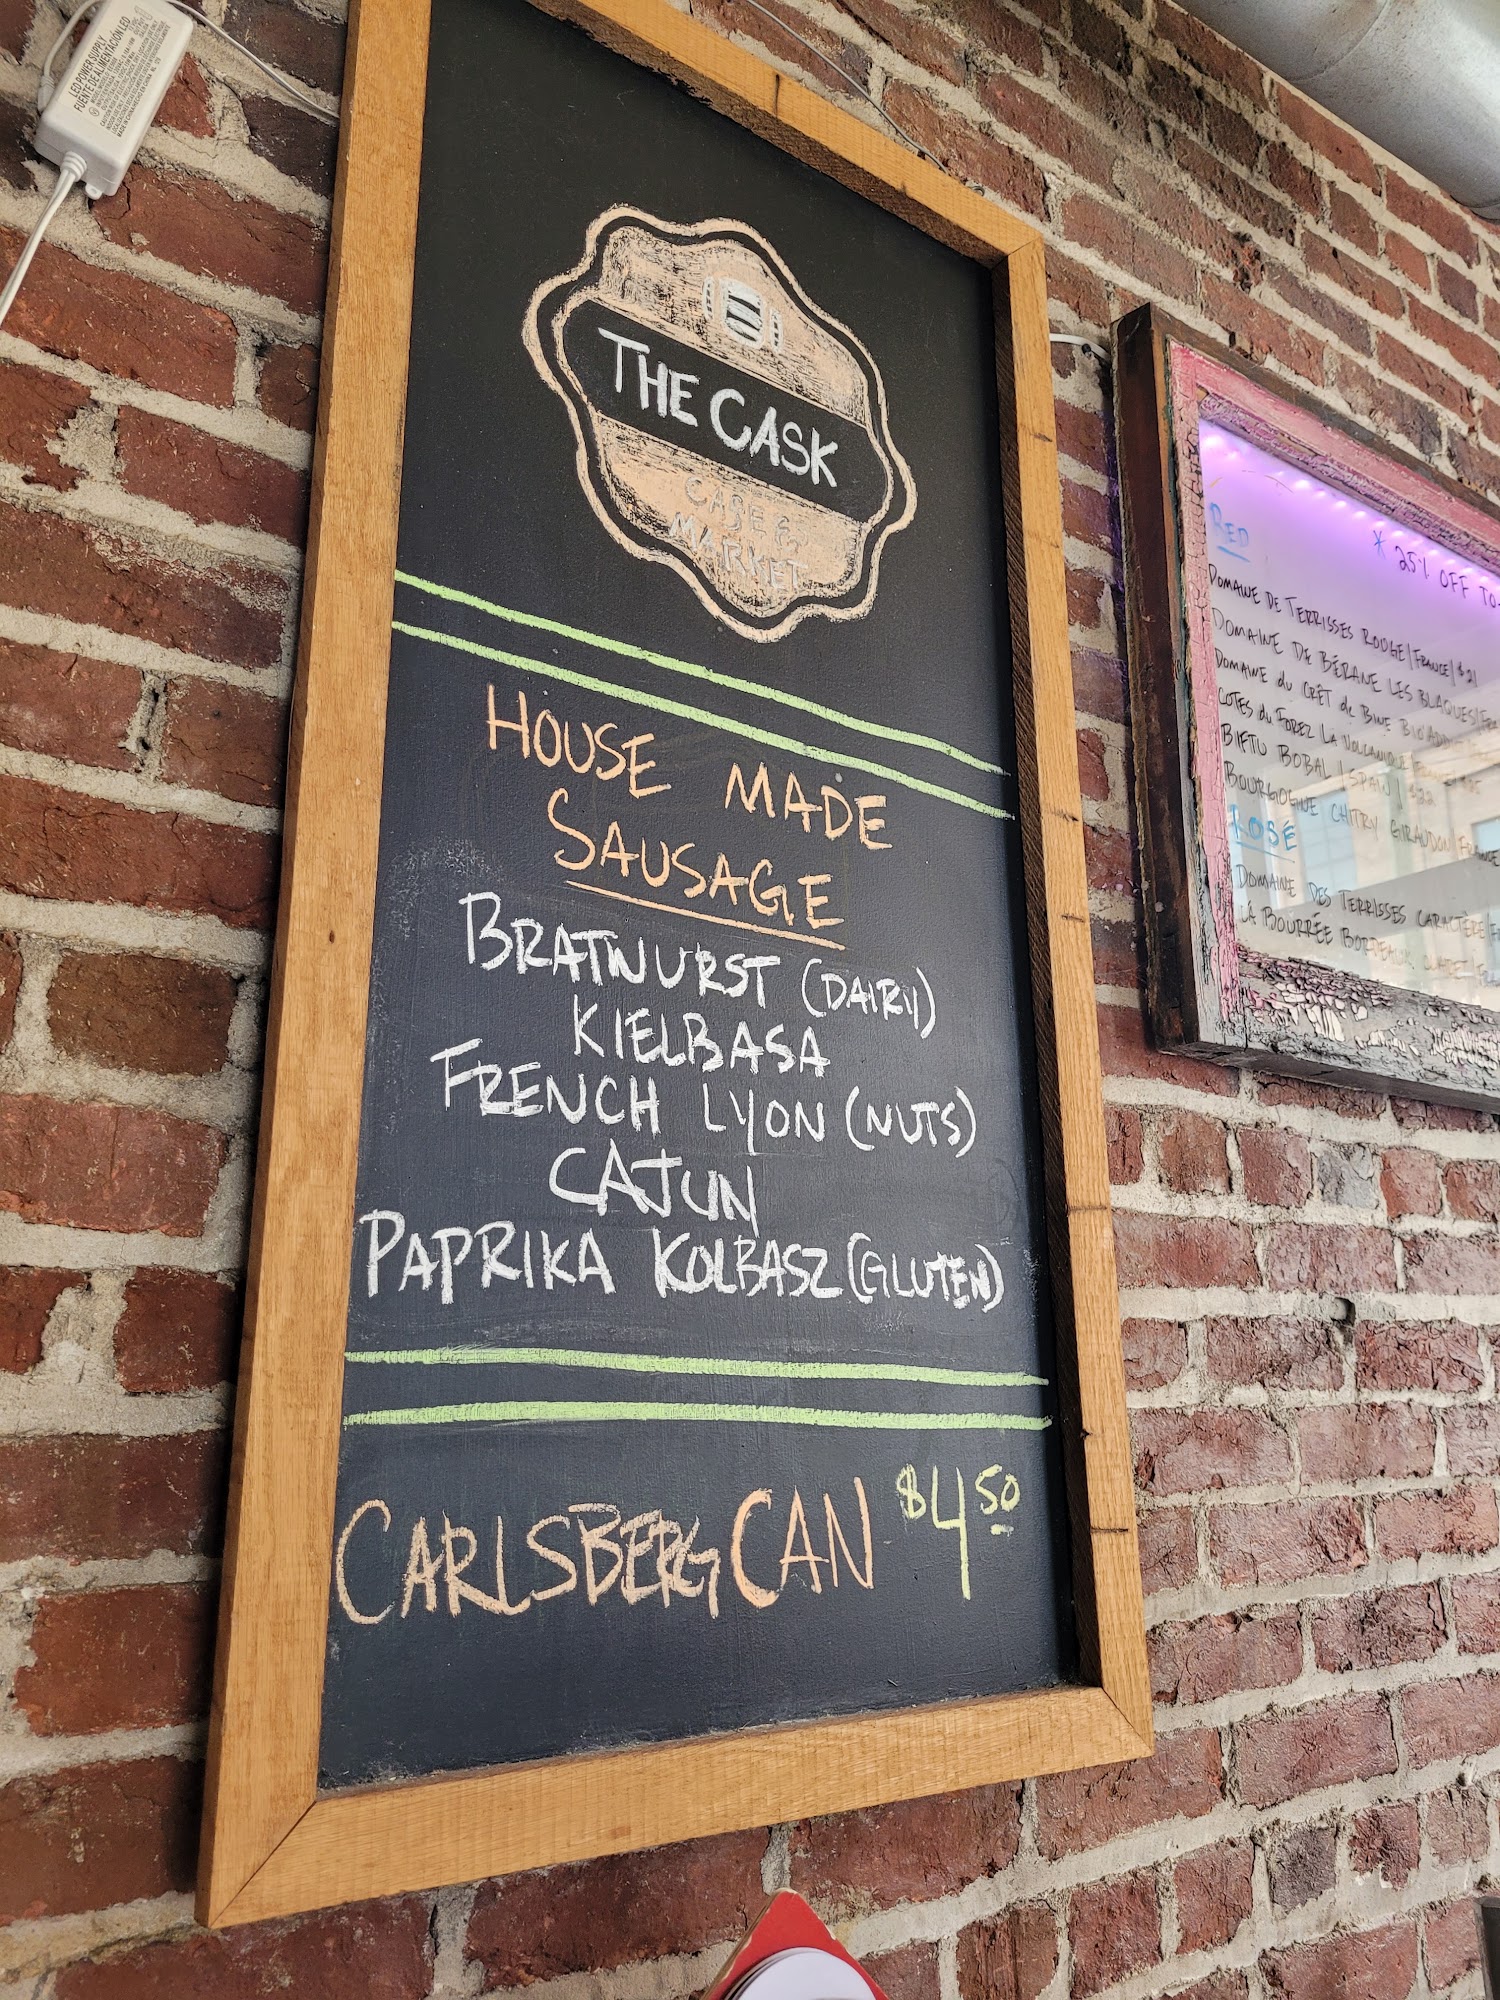 LED POWER SUPPLY
FUENTE DE ALIMENTACIÓN LED
THE CASK
CAFE &
MARKET
HOUSE MADE
SAUSAGE
BRATWURST (DAIRY)
KIELBASA
FRENCH LYON (NUTS)
CAJUN
PAPRIKA KOLBASZ (GLUTEN)
CARLSBERG CAN $4.50
RED
* 25% OFF TO
DOMAINE DE TERRISSES ROUGE | FRANCE | $21
DOMAINE DE BÉRANE LES BLAQUES
DOMAINE du CRÊT de BINE BIO'ADDICT
COTES du FOREZ LA VOLCANIQUE
BIFTU BOBAL | SPAIN | $22
BOURGOGNE CHITRY GIRAUDON FRANCE
ROSÉ
DOMAINE DES TERRISSES CARACTÈRE
LA BOURRÉE BORDEAUX CLAIRET